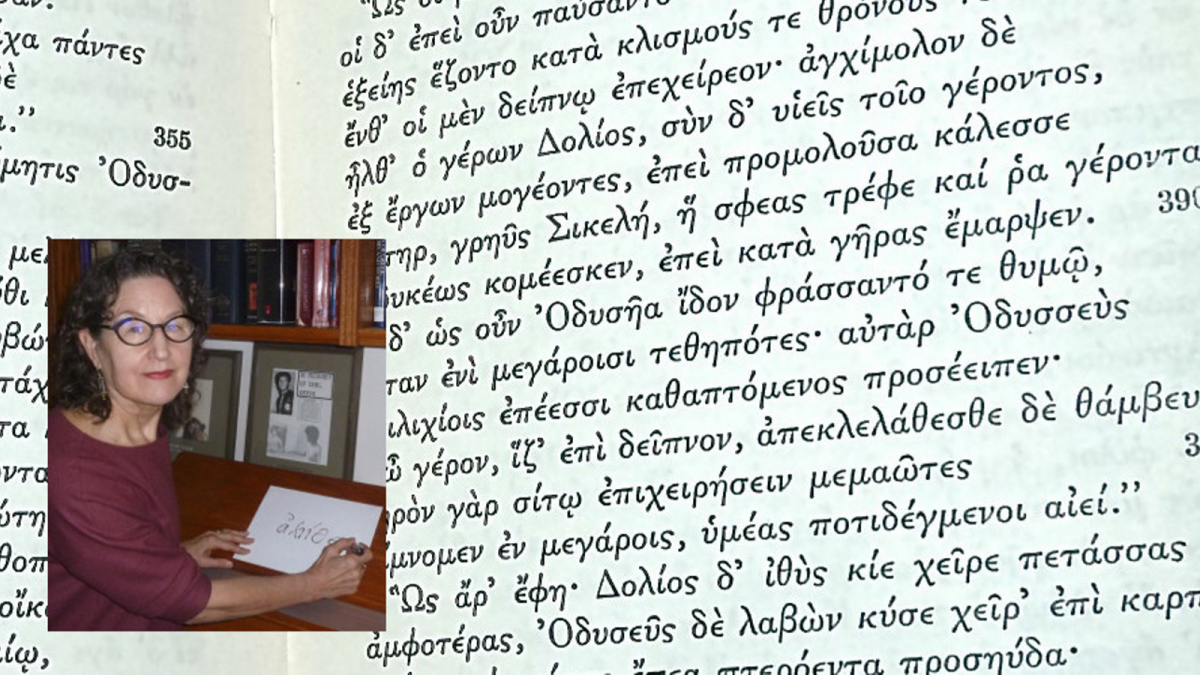 χα πάντες
355
μητις Ὀδυσ-
οἱ δ’ ἐπεὶ οὖν παύσαντο
ἑξείης ἕζοντο κατὰ κλισμούς τε θρόνους
ἔνθ’ οἱ μὲν δείπνῳ ἐπεχείρεον· ἀγχίμολον δὲ
ἦλθ’ ὁ γέρων Δολίος, σὺν δ’ υἱεῖς τοῖο γέροντος,
ἐξ ἔργων μογέοντες, ἐπεὶ προμολοῦσα κάλεσσε
τηρ, γρηῢς Σικελή, ἥ σφεας τρέφε καί ῥα γέροντα
υκέως κομέεσκεν, ἐπεὶ κατὰ γῆρας ἔμαρψεν. 390
δ’ ὡς οὖν Ὀδυσῆα ἴδον φράσσαντό τε θυμῷ,
ταν ἐνὶ μεγάροισι τεθηπότες· αὐτὰρ Ὀδυσσεὺς
ιλιχίοις ἐπέεσσι καθαπτόμενος προσέειπεν·
γέρον, ἵζ’ ἐπὶ δεῖπνον, ἀπεκλελάθεσθε δὲ θάμβευ
ρὸν γὰρ σίτῳ ἐπιχειρήσειν μεμαῶτες
μνομεν ἐν μεγάροις, ὑμέας ποτιδέγμενοι αἰεί.”
“Ὣς ἄρ’ ἔφη· Δολίος δ’ ἰθὺς κίε χεῖρε πετάσσας
ἀμφοτέρας, Ὀδυσεῦς δὲ λαβὼν κύσε χεῖρ’ ἐπὶ καρπ
ἔπεα πτερόεντα προσηύδα·